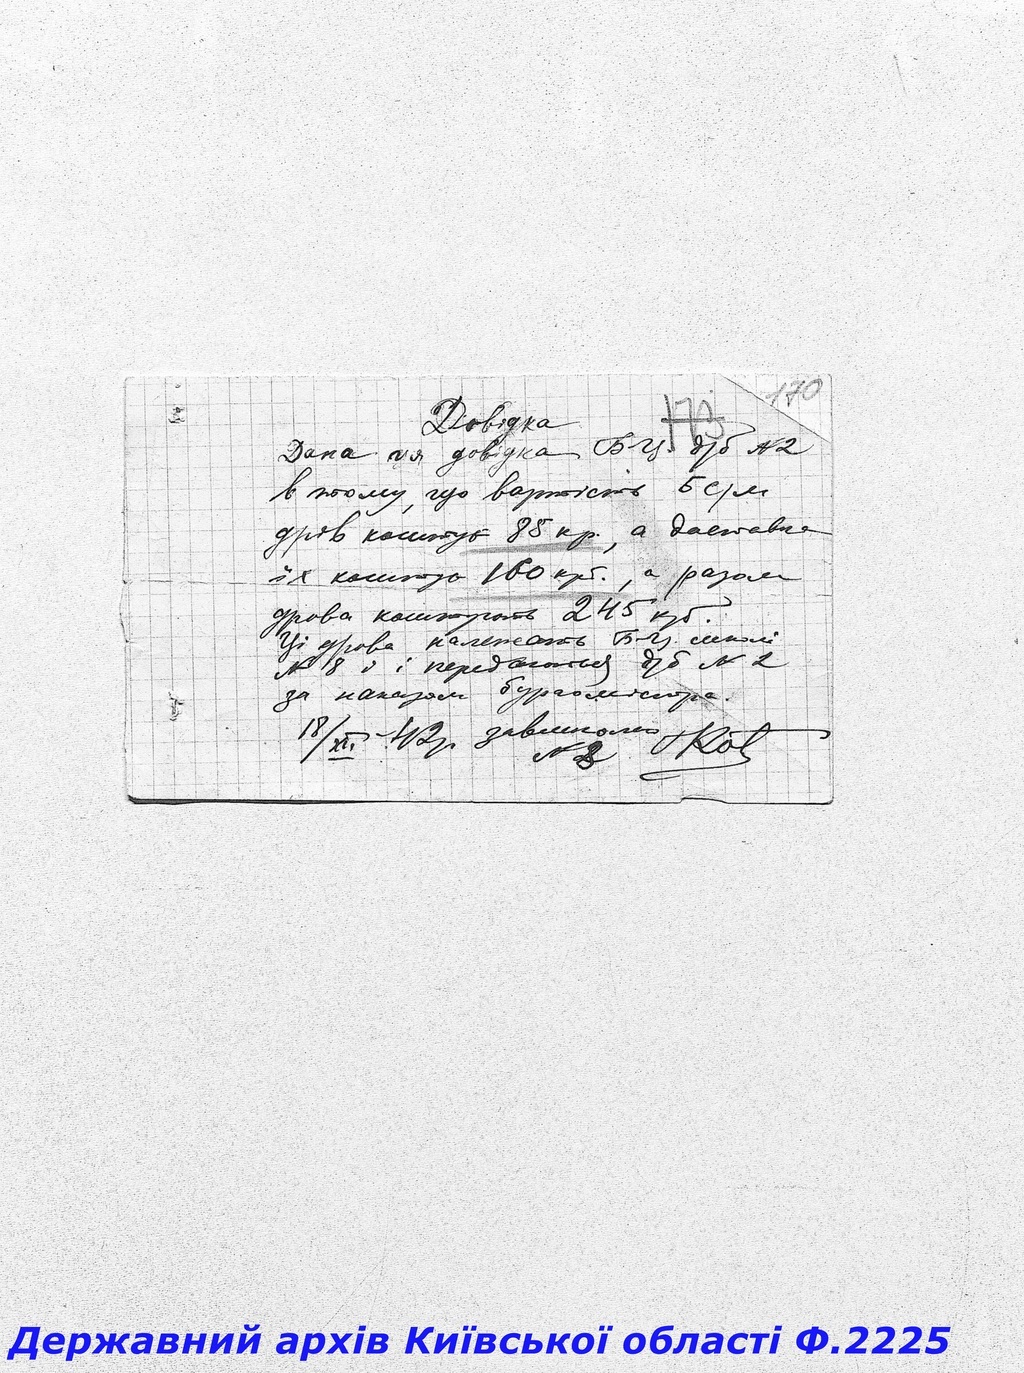 170
173
Довідка
Дана ця довідка Б-Ц. д/б №2
в тому, що вартість 5 с/м
дрів коштує 85 кр., а доставка
їх коштує 160 крб., а разом
дрова коштують 245 крб.
Ці дрова належать Б-Ц. школі
№ 8 і передаються д/б № 2
за наказом бургомістра.
18/XI 42р. завшколою
№ 8
Державний архів Київської області Ф.2225